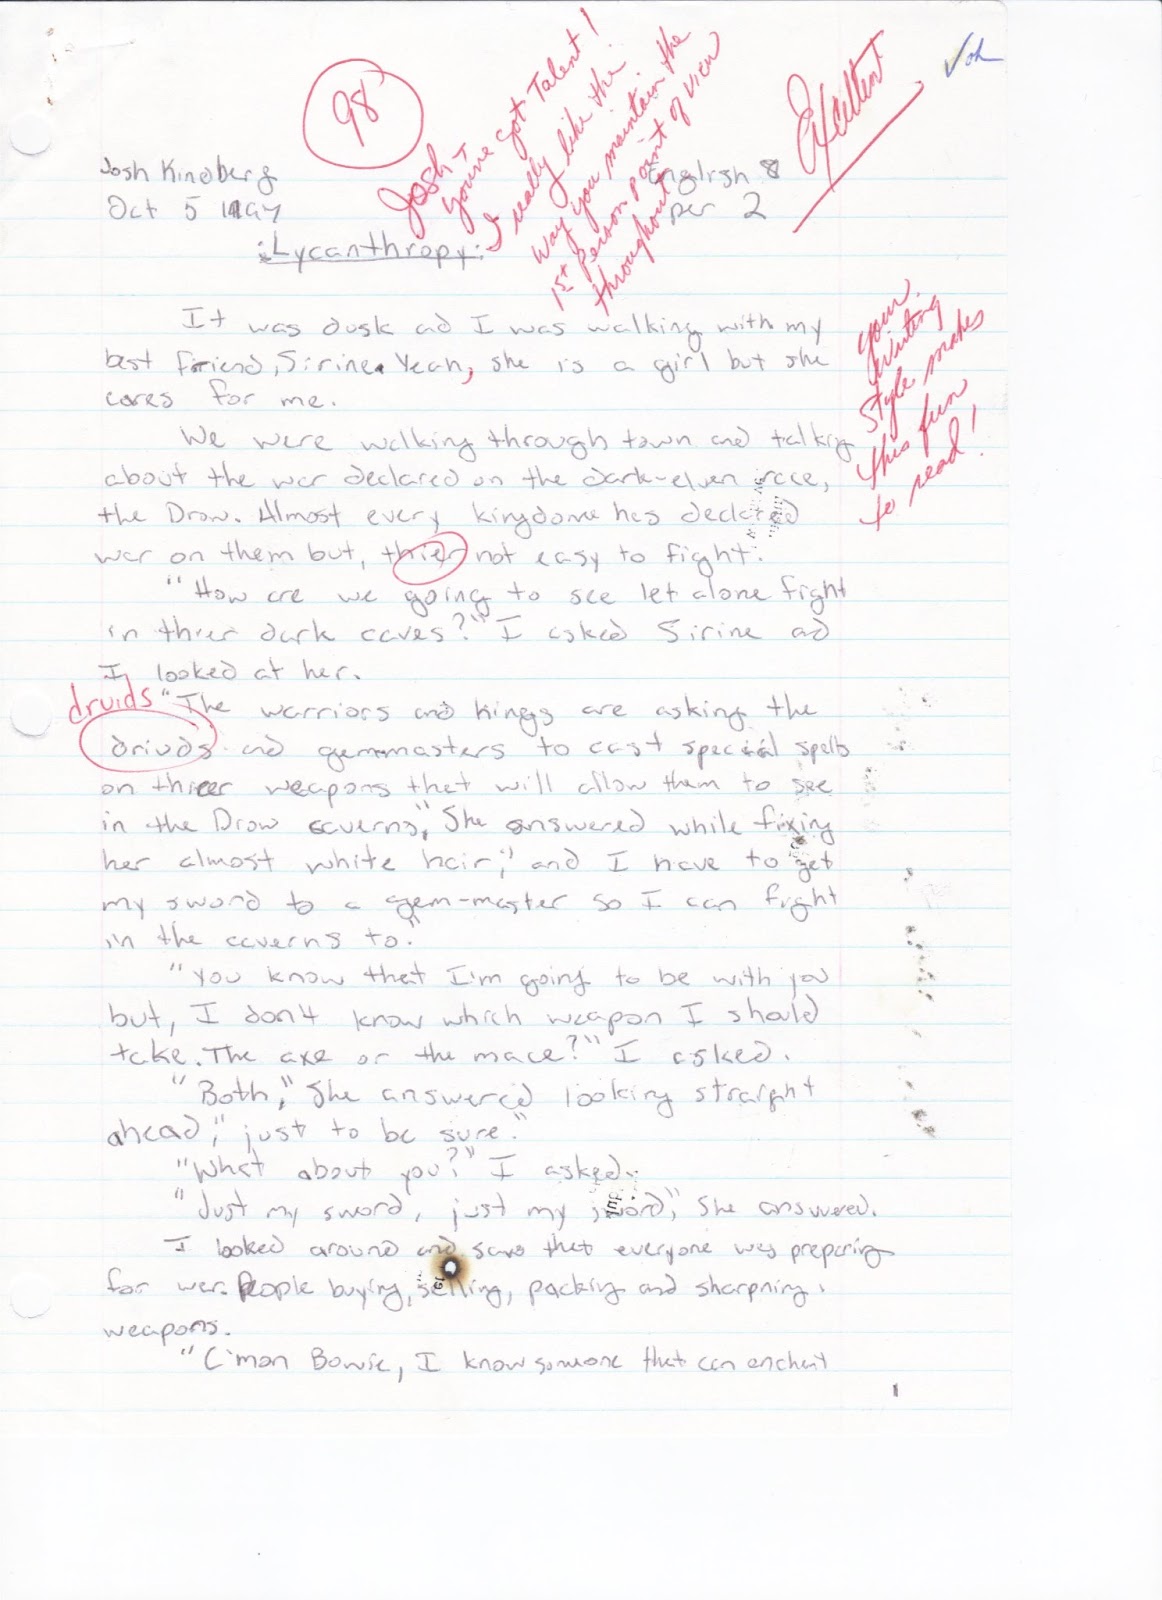 98
Josh -
you've got Talent!
I really like the
way you maintain the
1st Person point of view
throughout
Excellent
Josh Kinoberg
English 8
Oct 5
per 2
:Lycanthropy:
your
writing
style makes
this fun
to read!
It was dusk ad I was walking with my
best friend, Sirine. Yeah, she is a girl but she
cares for me.
We were walking through town and talking
about the war declared on the dark-elven race,
the Drow. Almost every kingdome has declared
war on them but, thier not easy to fight.
"How are we going to see let alone fight
in thier dark caves?" I asked Sirine ad
I looked at her.
druids
"The warriors and kings are asking the
driuds and gem-masters to cast special spells
on thier weapons that will allow them to see
in the Drow caverns," She answered while fixing
her almost white hair," and I have to get
my sword to a gem-master so I can fight
in the caverns to."
"You know that I'm going to be with you
but, I don't know which weapon I should
take. The axe or the mace?" I asked.
"Both," She answered looking straight
ahead," just to be sure."
"What about you?" I asked.
"Just my sword, just my sword," She answered.
I looked around and saw that everyone was preparing
for war. People buying, selling, packing and sharpning
weapons.
"C'mon Bowie, I know someone that can enchant
1